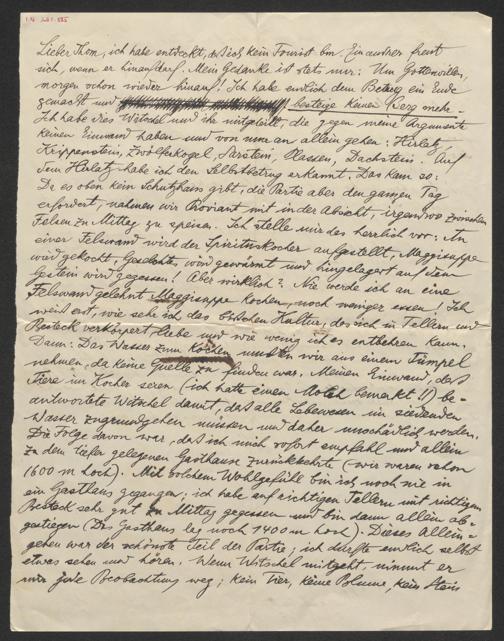 Lieber Thom, ich habe entdeckt, daß ich kein Tourist bin. Ein andrer freut
sich, wenn er hinauf darf. Mein Gedanke ist stets nur: Um Gotteswillen,
morgen schon wieder hinauf! Ich habe endlich dem Betrug ein Ende
gemacht und besteige keinen Berg mehr.
Ich habe dies Witschel und ihr mitgeteilt, die gegen meine Argumente
keinen Einwand haben und von nun an allein gehen: Hirlatz,
Krippenstein, Zwölferkogel, Sarstein, Plassen, Dachstein. Auf
dem Hirlatz habe ich den Selbstbetrug erkannt. Das kam so:
Da es oben kein Schutzhaus gibt, die Partie aber den ganzen Tag
erfordert, nahmen wir Proviant mit in der Absicht, irgendwo zwischen
Felsen zu Mittag zu speisen. Ich stelle mir das herrlich vor: An
einer Felswand wird der Spirituskocher aufgestellt, Maggisuppe
wird gekocht, Geselchtes wird gewärmt und hingelagert auf dem
Gestein wird gegessen! Aber wirklich? Nie werde ich an eine
Felswand gelehnt Maggisuppe kochen, noch weniger essen! Ich
weiß erst, wie sehr ich das bißchen Kultur, das sich in Tellern und
Besteck verkörpert, liebe und wie wenig ich es entbehren kann.
Dann: Das Wasser zum Kochen mußten wir aus einem Tümpel
nehmen, da keine Quelle zu finden war. Meinen Einwand, daß
Tiere im Kocher seien (ich hatte einen Molch bemerkt!!) be-
antwortete Witschel damit, daß alle Lebewesen im siedenden
Wasser zugrundgehen müssten und daher unschädlich werden.
Die Folge davon war, daß ich mich sofort empfahl und allein
zu dem tiefer gelegenen Gasthause zurückkehrte (wir waren schon
1600 m hoch). Mit solchem Wohlgefühl bin ich noch nie in
ein Gasthaus gegangen; ich habe auf richtigen Tellern mit richtigem
Besteck sehr gut zu Mittag gegessen und bin dann allein ab-
gestiegen (Das Gasthaus lag noch 1400 m hoch). Dieses Allein-
gehen war der schönste Teil der Partie; ich durfte endlich selbst
etwas sehen und hören. Wenn Witschel mitgeht, nimmt er
mir jede Beobachtung weg; kein Tier, keine Blume, kein Stein